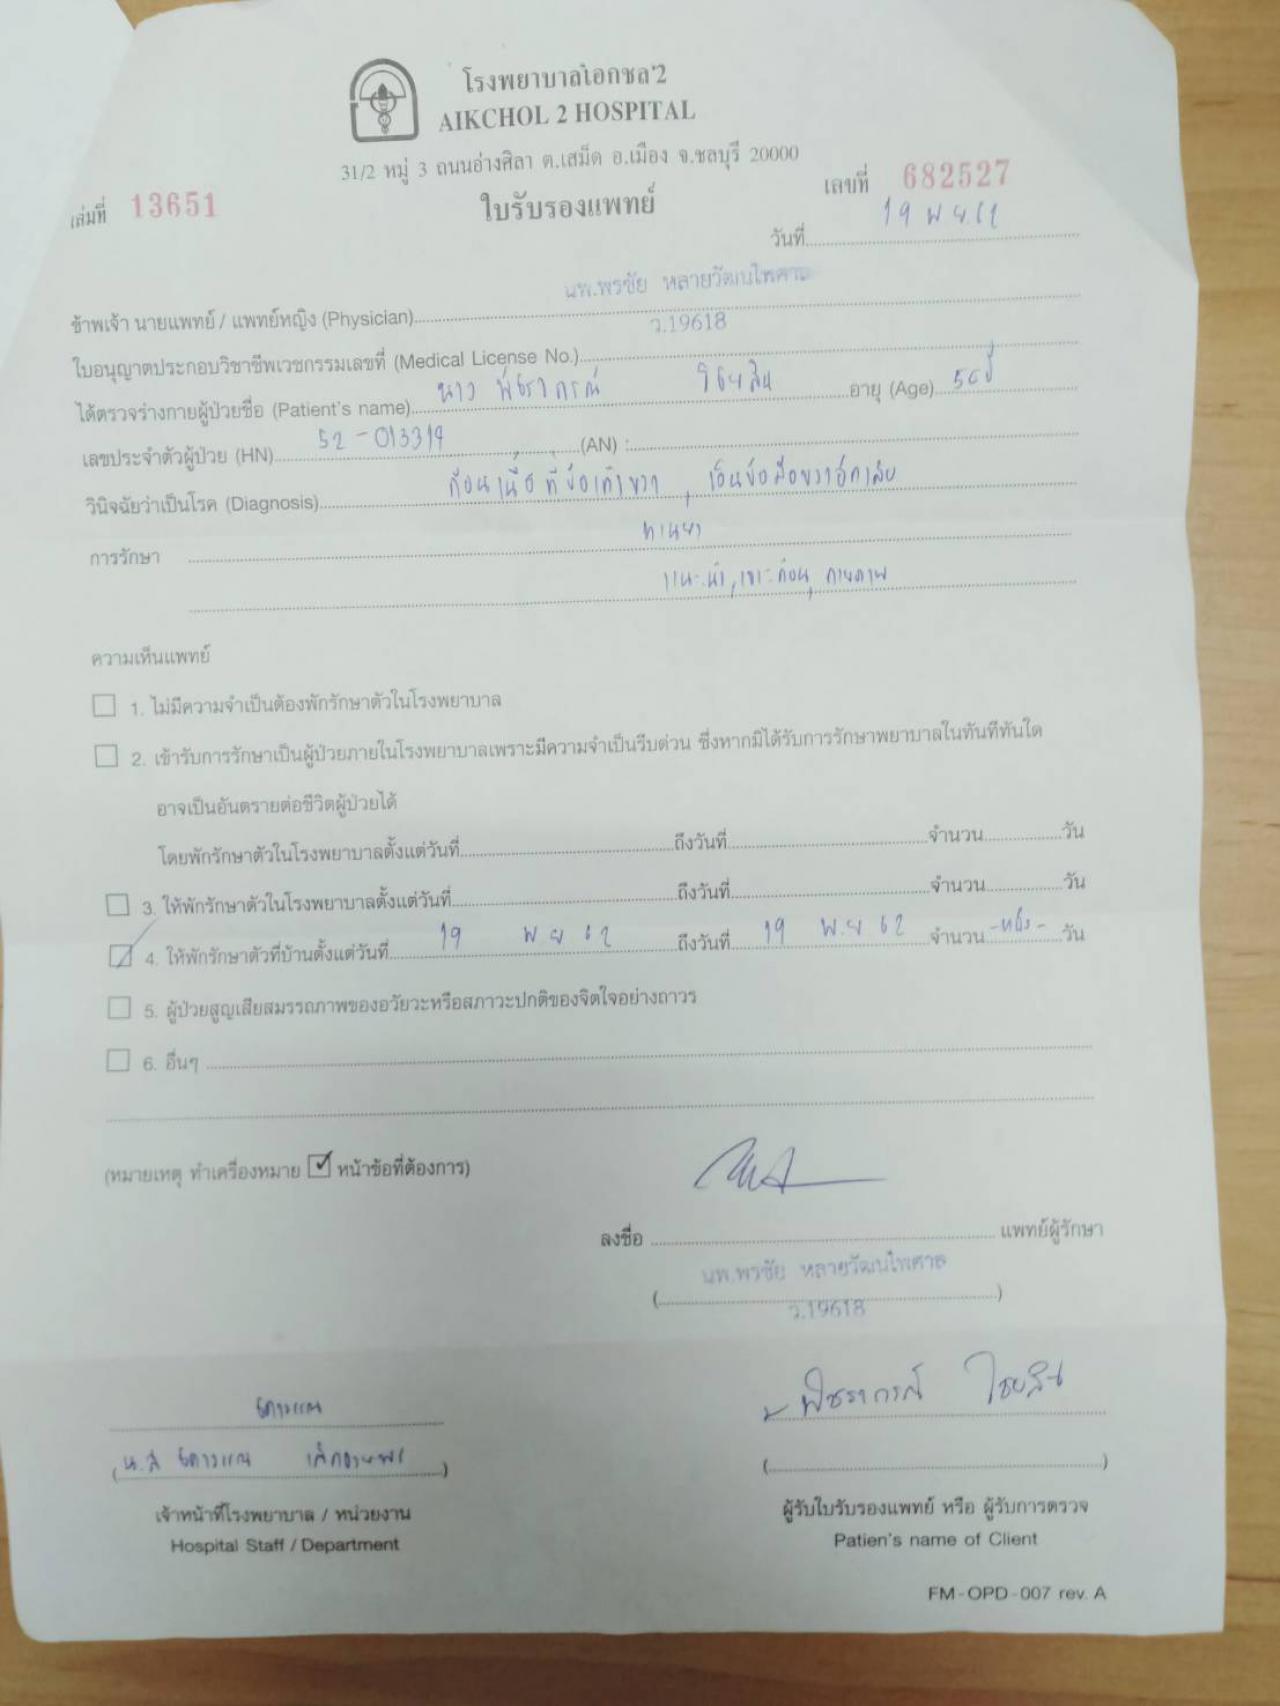 โรงพยาบาลเอกชล 2
AIKCHOL 2 HOSPITAL
31/2 หมู่ 3 ถนนอ่างศิลา ต.เสม็ด อ.เมือง จ.ชลบุรี 20000
เล่มที่ 13651
เลขที่ 682527
ใบรับรองแพทย์
วันที่ 19 พ.ย. 62
ข้าพเจ้า นายแพทย์ / แพทย์หญิง (Physician) นพ.พรชัย หลายวัฒนไพศาล
ใบอนุญาตประกอบวิชาชีพเวชกรรมเลขที่ (Medical License No.) ว.19618
ได้ตรวจร่างกายผู้ป่วยชื่อ (Patient's name) นาง พัชราภรณ์ อายุ (Age)
เลขประจำตัวผู้ป่วย (HN) 52-013319 (AN) :
วินิจฉัยว่าเป็นโรค (Diagnosis) ก้อนเนื้อที่ข้อเท้าขวา , เอ็นข้อมือขวาอักเสบ
การรักษา ทานยา
แนะนำ, เจาะก้อน, กายภาพ
ความเห็นแพทย์
1. ไม่มีความจำเป็นต้องพักรักษาตัวในโรงพยาบาล
2. เข้ารับการรักษาเป็นผู้ป่วยภายในโรงพยาบาลเพราะมีความจำเป็นรีบด่วน ซึ่งหากมิได้รับการรักษาพยาบาลในทันทีทันใด
อาจเป็นอันตรายต่อชีวิตผู้ป่วยได้
โดยพักรักษาตัวในโรงพยาบาลตั้งแต่วันที่ ถึงวันที่ จำนวน วัน
3. ให้พักรักษาตัวในโรงพยาบาลตั้งแต่วันที่ ถึงวันที่ จำนวน วัน
4. ให้พักรักษาตัวที่บ้านตั้งแต่วันที่ 19 พ.ย. 62 ถึงวันที่ 19 พ.ย 62 จำนวน -หนึ่ง- วัน
5. ผู้ป่วยสูญเสียสมรรถภาพของอวัยวะหรือสภาวะปกติของจิตใจอย่างถาวร
6. อื่นๆ
(หมายเหตุ ทำเครื่องหมาย ☑ หน้าข้อที่ต้องการ)
ลงชื่อ แพทย์ผู้รักษา
(นพ.พรชัย หลายวัฒนไพศาล)
ว.19618
เจ้าหน้าที่โรงพยาบาล / หน่วยงาน
Hospital Staff / Department
ผู้รับใบรับรองแพทย์ หรือ ผู้รับการตรวจ
Patien's name of Client
FM-OPD-007 rev. A